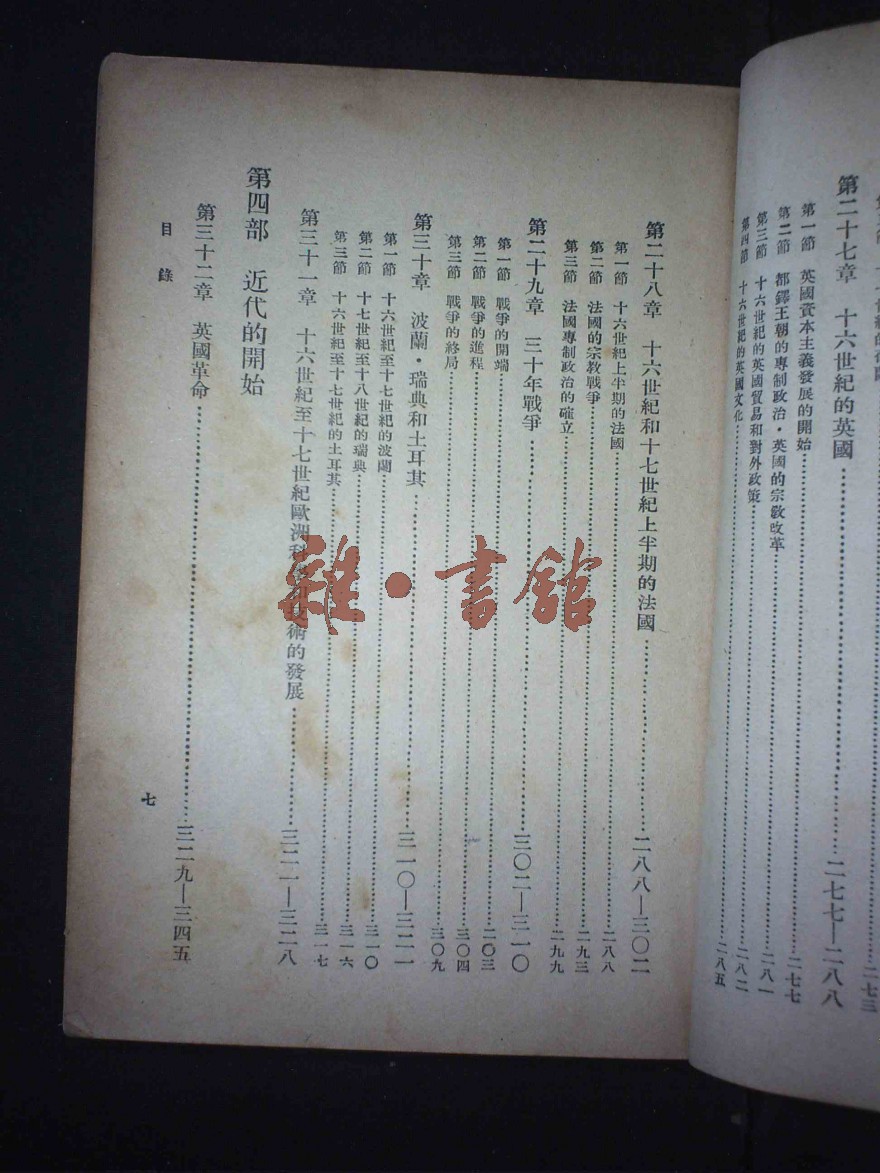 第二十七章 十六世紀的英國……二七七—二八八
第一節 英國資本主義發展的開始……二七七
第二節 都鐸王朝的專制政治·英國的宗敎改革……二八一
第三節 十六世紀的英國貿易和對外政策……二八二
第四節 十六世紀的英國文化……二八五
第二十八章 十六世紀和十七世紀上半期的法國……二八八—三〇二
第一節 十六世紀上半期的法國……二八八
第二節 法國的宗敎戰爭……二九三
第三節 法國專制政治的確立……二九九
第二十九章 三十年戰爭……三〇二—三一〇
第一節 戰爭的開端……二〇三
第二節 戰爭的進程……三〇四
第三節 戰爭的終局……三〇九
第三十章 波蘭·瑞典和土耳其……三一〇—三二一
第一節 十六世紀至十七世紀的波蘭……三一〇
第二節 十七世紀至十八世紀的瑞典……三一六
第三節 十六世紀至十七世紀的土耳其……三一七
第三十一章 十六世紀至十七世紀歐洲科技術的發展……三二一—三二八
第四部 近代的開始
第三十二章 英國革命……三二九—三四五
目錄
七
雜·書館